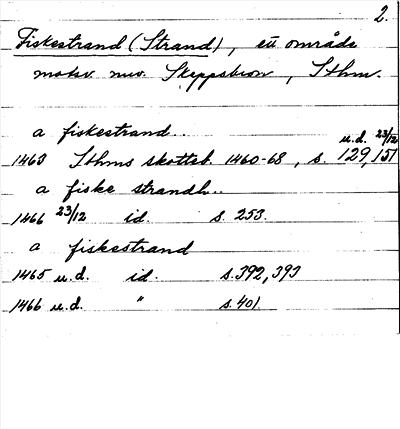 2.
Fiskestrand (Strand), ett område
motsv. nuv. Skeppsbron, Sthm.
a fiskestrand..
u.d. 23/12
1463 Sthms skotteb. 1460-68, s. 129, 151
a fiske strandh..
1466 23/12 id. s. 253.
a fiskestrand
1465 u.d. id. s. 392, 393
1466 u.d. " s. 401